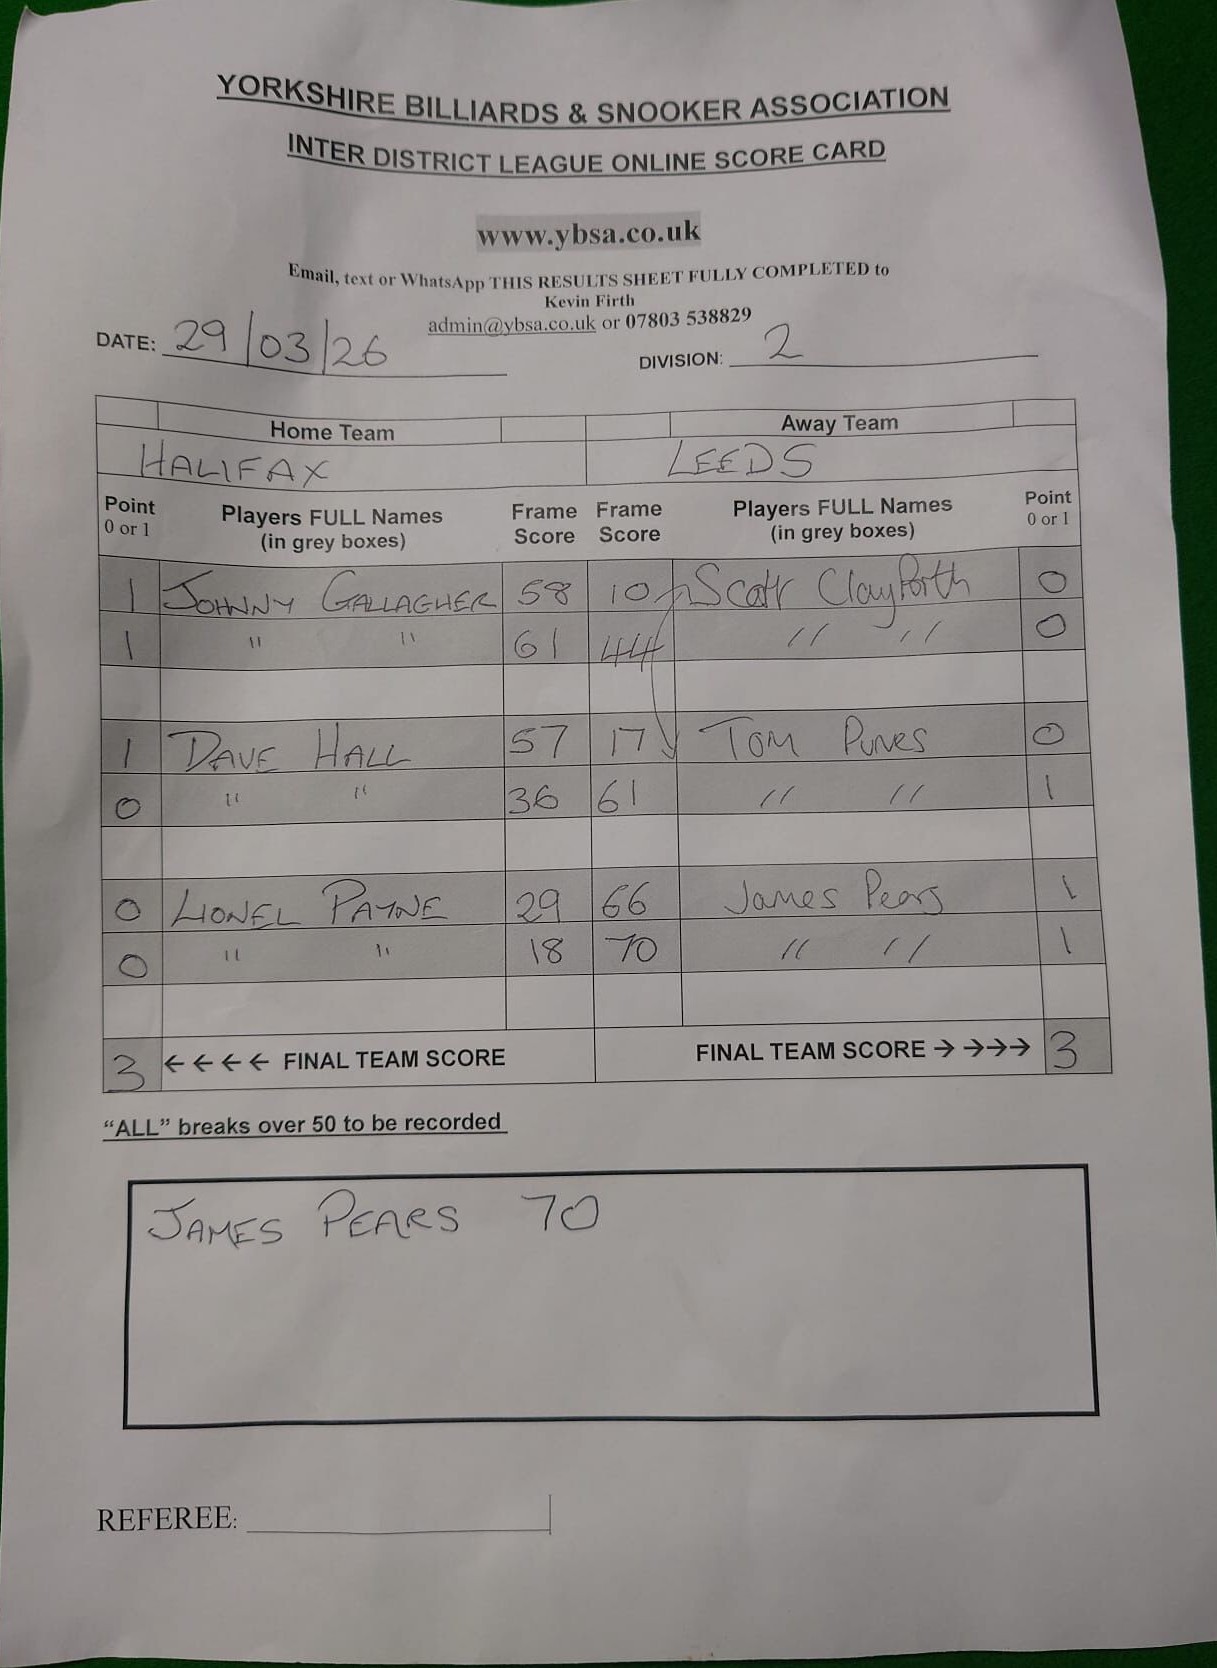 YORKSHIRE BILLIARDS & SNOOKER ASSOCIATION
INTER DISTRICT LEAGUE ONLINE SCORE CARD
www.ybsa.co.uk
Email, text or WhatsApp THIS RESULTS SHEET FULLY COMPLETED to
Kevin Firth
admin@ybsa.co.uk or 07803 538829
DATE: 29/03/26
DIVISION: 2
Home Team Away Team
HALIFAX LEEDS
Point 0 or 1 Players FULL Names (in grey boxes) Frame Score Frame Score Players FULL Names (in grey boxes) Point 0 or 1
1 JOHNNY GALLAGHER 58 10 Scott Clayforth 0
1 " " 61 44 " " 0
1 DAVE HALL 57 17 TOM Purves 0
0 " " 36 61 " " 1
0 LIONEL PAYNE 29 66 James Pears 1
0 " " 18 70 " " 1
3 ←←←← FINAL TEAM SCORE FINAL TEAM SCORE →→→→ 3
"ALL" breaks over 50 to be recorded
JAMES PEARS 70
REFEREE: